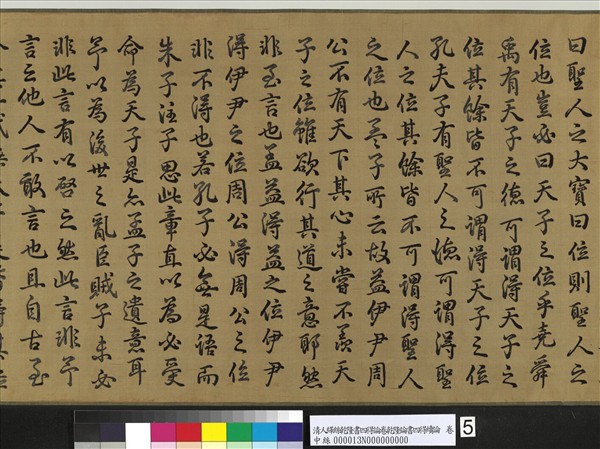 曰聖人之大寶曰位則聖人之
位也豈必曰天子之位乎堯舜
禹有天子之德可謂得天子之
位其餘皆不可謂得天子之位
孔夫子有聖人之德可謂得聖
人之位其餘皆不可謂得聖人
之位也孟子所云故益伊尹周
公不有天下其心未嘗不羨天
子之位雖欲行其道之意耶然
非至言也蓋益得益之位伊尹
得伊尹之位周公得周公之位
非不得也若孔子必無是語而
朱子注子思此章直以為必受
命為天子是亦孟子之遺意耳
予以為後世之亂臣賊子未必
非此言有以啓之然此言非予
言之他人不敢言也且自古至
清人緙絲乾隆書四得論卷乾隆論書四得續論 卷
中絲 000013N000000000
5